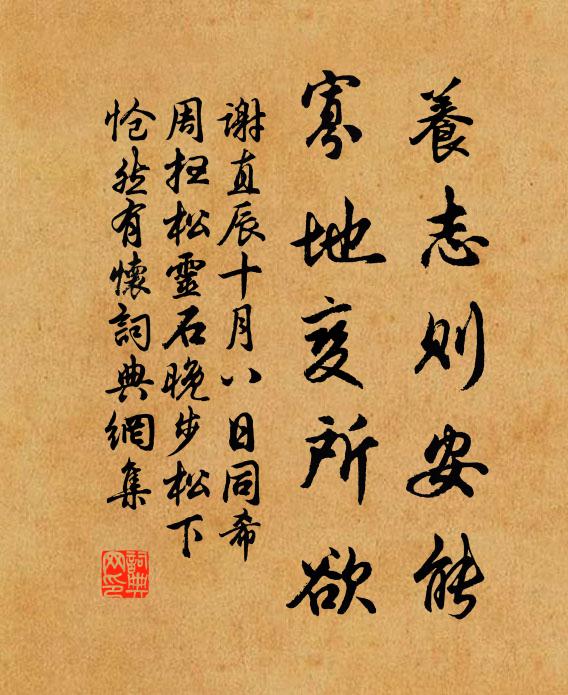 養志则安能
寡地变所欲
謝直辰十月八日同希
周抂松靈石晚步松下
怆然有懷詞典網集
詞典
网印